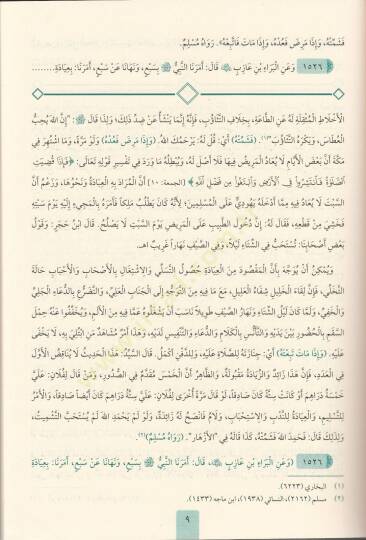 فَشَمِّتْهُ، وَإِذَا مَرِضَ فَعُدْهُ، وَإِذَا مَاتَ فَاتَّبِعْهُ». رَوَاهُ مُسْلِمٌ.
١٥٢٦ وَعَنِ الْبَرَاءِ بْنِ عَازِبٍ قَالَ: أَمَرَنَا النَّبِيُّ ﷺ بِسَبْعٍ، وَنَهَانَا عَنْ سَبْعٍ، أَمَرَنَا: بِعِيَادَةِ........
الْأَخْلَاطِ الْمُثْقِلَةِ لَهُ عَنِ الطَّاعَةِ، بِخِلَافِ التَّثَاؤُبِ، فَإِنَّهُ إِنَّمَا يَنْشَأُ عَنْ ضِدِّ ذَلِكَ؛ وَلِذَا قَالَ ﷺ: "إِنَّ اللهَ يُحِبُّ
الْعُطَاسَ، وَيَكْرَهُ التَّثَاؤُبَ"(١). (فَشَمِّتْهُ) أَيْ: قُلْ لَهُ: يَرْحَمُكَ اللهُ. (وَإِذَا مَرِضَ فَعُدْهُ) وَلَوْ مَرَّةً، وَمَا اشْتَهَرَ فِي
مَكَّةَ أَنَّ بَعْضَ الْأَيَّامِ لَا يُعَادُ الْمَرِيضُ فِيهَا فَلَا أَصْلَ لَهُ، وَيُبْطِلُهُ مَا وَرَدَ فِي تَفْسِيرِ قَوْلِهِ تَعَالَى: ﴿فَإِذَا قُضِيَتِ
الصَّلَاةُ فَانْتَشِرُوا فِي الْأَرْضِ وَابْتَغُوا مِنْ فَضْلِ اللَّهِ﴾ [الجمعة: ١٠] أَنَّ الْمُرَادَ بِهِ الْعِيَادَةُ وَنَحْوُهَا، وَزَعْمُ أَنَّ
السَّبْتَ لَا يُعَادُ فِيهِ مِمَّا أَدْخَلَهُ يَهُودِيٌّ عَلَى الْمُسْلِمِينَ؛ لِأَنَّهُ كَانَ يَطِبُّ مَلِكًا فَأَمَرَهُ بِالْمَجِيءِ إِلَيْهِ يَوْمَ سَبْتِهِ
فَخَشِيَ مِنْ قَطْعِهِ، فَقَالَ لَهُ: إِنَّ دُخُولَ الطَّبِيبِ عَلَى الْمَرِيضِ يَوْمَ السَّبْتِ لَا يَصْلُحُ. قَالَ ابْنُ حَجَرٍ: وَقَوْلُ
بَعْضِ أَصْحَابِنَا: تُسْتَحَبُّ فِي الشِّتَاءِ لَيْلًا، وَفِي الصَّيْفِ نَهَارًا غَرِيبٌ اهـ.
وَيُمْكِنُ أَنْ يُوَجَّهَ بِأَنَّ الْمَقْصُودَ مِنَ الْعِيَادَةِ حُصُولُ التَّسَلِّي وَالِاشْتِغَالِ بِالْأَصْحَابِ وَالْأَحْبَابِ حَالَةَ
التَّخَلِّي، فَإِنَّ لِقَاءَ الْخَلِيلِ شِفَاءُ الْعَلِيلِ، مَعَ مَا فِيهِ مِنَ التَّوَجُّهِ إِلَى الْجَنَابِ الْعَلِيِّ، وَالتَّضَرُّعِ بِالدُّعَاءِ الْجَلِيِّ
وَالْخَفِيِّ، وَلَمَّا كَانَ لَيْلُ الشِّتَاءِ وَنَهَارُ الصَّيْفِ طَوِيلًا نَاسَبَ أَنْ يَشْغَلُوهُ عَمَّا فِيهِ مِنَ الْأَلَمِ، وَيُخَفِّفُوا عَنْهُ حِمْلَ
السَّقَمِ بِالْحُضُورِ بَيْنَ يَدَيْهِ وَالتَّأَنُّسِ بِالْكَلَامِ وَالدُّعَاءِ وَالتَّنْفِيسِ لَدَيْهِ، وَهَذَا أَمْرٌ مُشَاهَدٌ مَنِ ابْتُلِيَ بِهِ، لَا يَخْفَى
عَلَيْهِ. (وَإِذَا مَاتَ تَبِعَتْهُ) أَيْ: جِنَازَتَهُ لِلصَّلَاةِ عَلَيْهِ، وَلِلدَّفْنِ أَكْمَلُ. قَالَ السَّيِّدُ: هَذَا الْحَدِيثُ لَا يُنَاقِضُ الْأَوَّلَ
فِي الْعَدَدِ، فَإِنَّ هَذَا زَائِدٌ وَالزِّيَادَةُ مَقْبُولَةٌ، وَالظَّاهِرُ أَنَّ الْخَمْسَ مُقَدَّمٌ فِي الصُّدُورِ، وَمَنْ قَالَ لِفُلَانٍ: عَلَيَّ
خَمْسَةُ دَرَاهِمَ أَوْ كَانَتْ سِتَّةً كَانَ صَادِقًا، لَوْ قَالَ مَرَّةً أُخْرَى لِفُلَانٍ: عَلَيَّ سِتَّةُ دَرَاهِمَ كَانَ أَيْضًا صَادِقًا، وَالْأَمْرُ
لِلتَّسْلِيمِ، وَالْعِيَادَةُ لِلنَّدْبِ وَالِاسْتِحْبَابِ، وَلَامُ فَانْصَحْ لَهُ زَائِدَةٌ، وَلَوْ لَمْ يَحْمَدِ اللهَ لَمْ يُسْتَحَبَّ التَّشْمِيتُ،
وَلِذَلِكَ قَالَ: فَحَمِدَ اللهَ فَشَمِّتْهُ، كَذَا قَالَهُ فِي "الْأَزْهَارِ". (رَوَاهُ مُسْلِمٌ)(٢).
١٥٢٦ (وَعَنِ الْبَرَاءِ بْنِ عَازِبٍ، قَالَ: أَمَرَنَا النَّبِيُّ ﷺ بِسَبْعٍ، وَنَهَانَا عَنْ سَبْعٍ، أَمَرَنَا: بِعِيَادَةِ
(١) البخاري (٦٢٢٣).
(٢) مسلم (٢١٦٢)، النسائي (١٩٣٨)، ابن ماجه (١٤٣٣).
٩